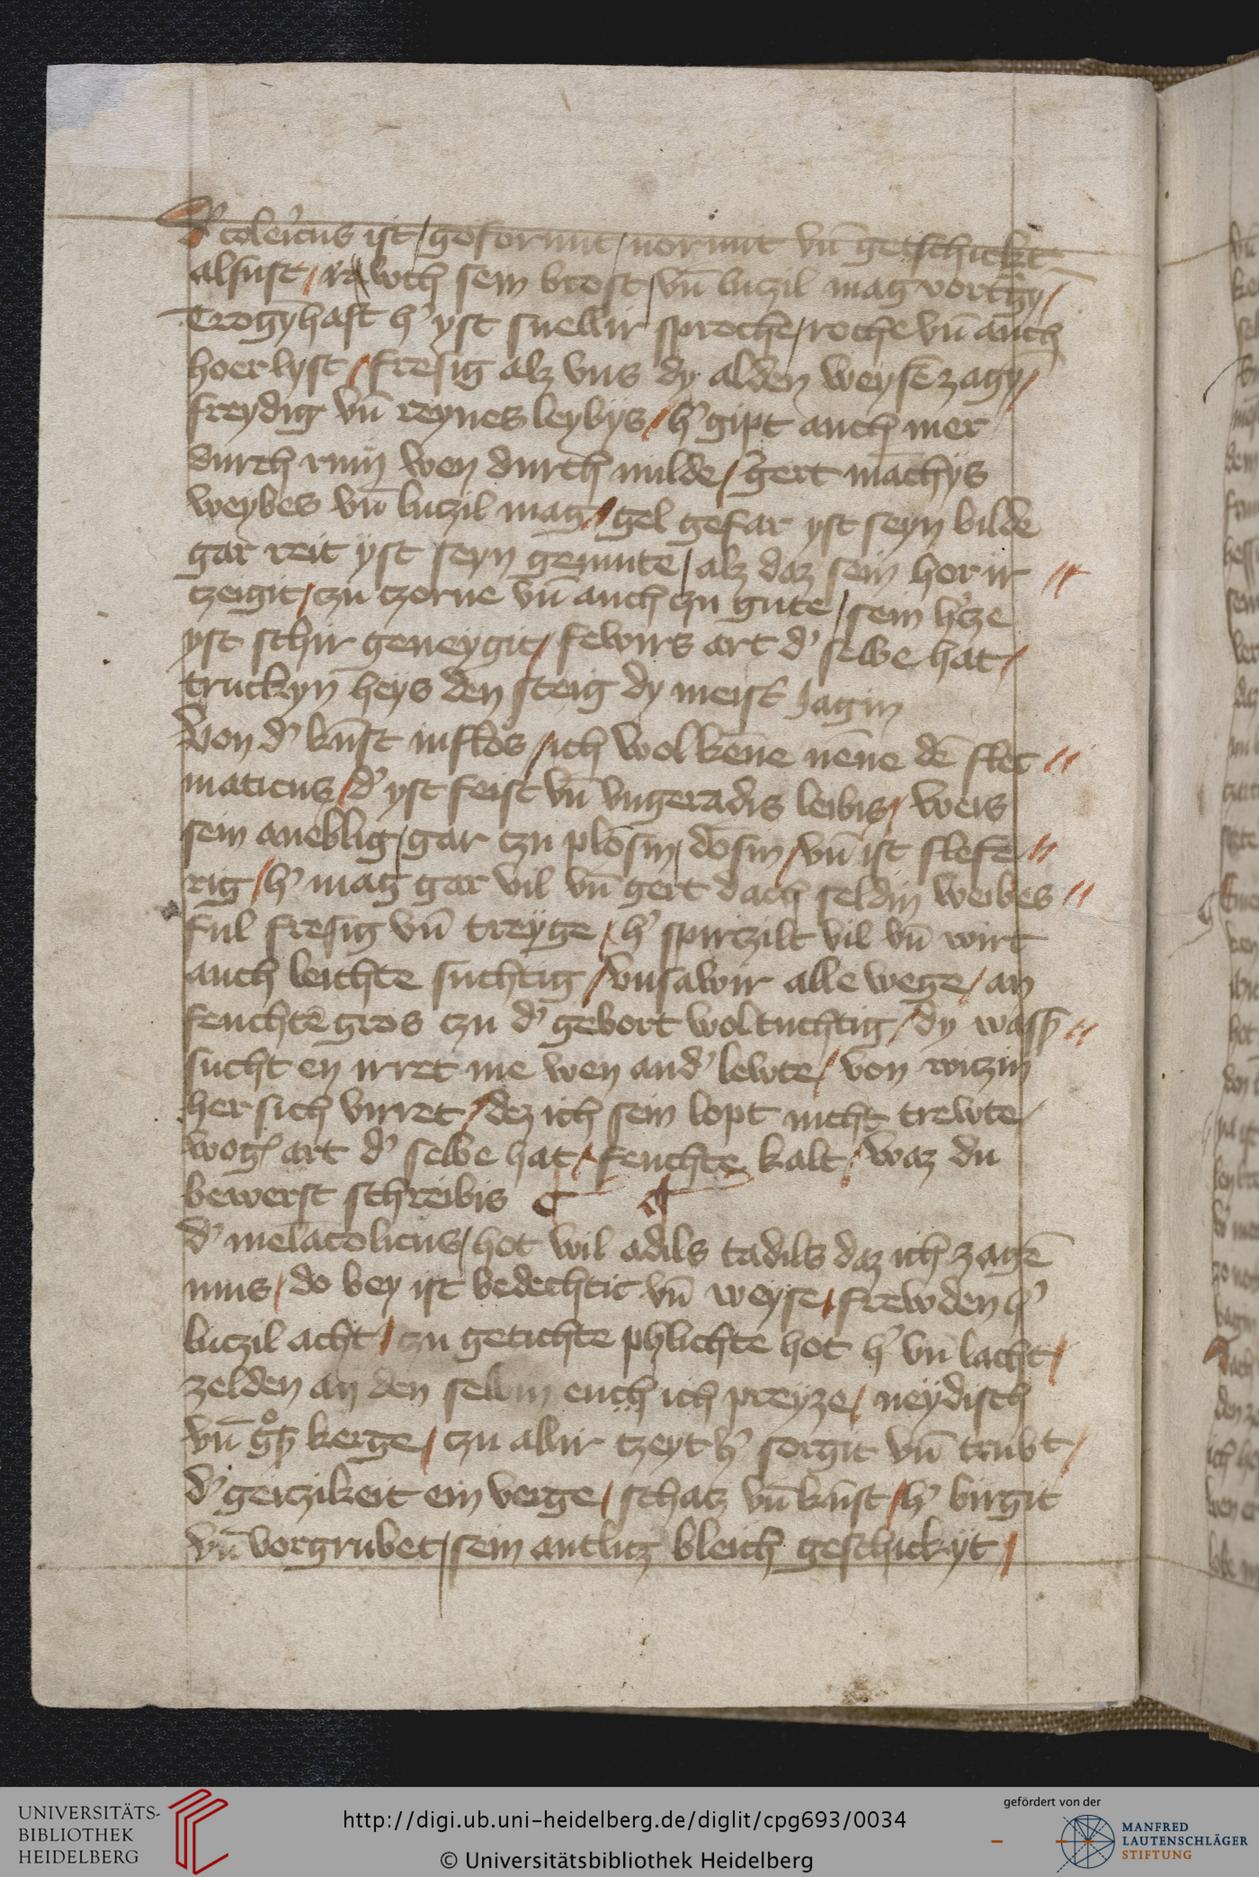 D' colericus ist / geformit / normit vn̄ geschickt
alsust / rawch sein brost / vn̄ luczil mag vortgy /
Trogyhaft h' yst snellir sprochē / roche vn̄ auch
hoerlyst / fresig alz vns dy alden weysē zagy /
freydig vn̄ reynes leybys / h' gipt auch mer
durch rum wen durch milde / gert machys
weybes vn̄ luczil mag / gel gefar yst seyn bilde
gar reit yst seyn gemute / alz daz sein hor ir //
tzeigit / czu czorne vn̄ auch czu gute / sein h'cze
yst schir geneygit / fewirs art d' selbe hat /
truckyn heys den steig dy meist' Jagin
Von d' kunst influs / ich wolkēne nēne dē flec //
maticus / d' yst feist vn̄ vngeradis leibis / weis
sein aneblig / gar czu plosin / dosin / vn̄ ist slefe //
rig / h' mag gar vil vn̄ gert dach seldin weibes //
ful fresig vn̄ treyge / h' spirczilt vil vn̄ wirt
auch leichte suchtig / vnsawir alle wege / an
feuchtē gros czu d' gebort woltuchtig / dy wass' //
sucht en irret me wen and' lewte / von wiczin
her sich virret / dez ich sein lopt nicht trewte /
wog' art d' selbe hat / feuchte kalt / waz du
bewerst schreibis
d' melācolicus / hot wil adils tadils daz ich zagē
mus / do bey ist bedechtic vn̄ weyse / frewden h'
luczil acht / czu getichte phlichte hot h' vn̄ lacht /
zelden an den selbin euch ich preyze / neydisch
vn̄ gros' kerge / czu allir tzeyt h' sorgit vn̄ trubt /
d' geiczikeit ein verge / schatz vn̄ kunst / h' birgit
vn̄ vorgrubet / sein antlicz bleich geschickyt /
UNIVERSITÄTS-
BIBLIOTHEK
HEIDELBERG
http://digi.ub.uni-heidelberg.de/diglit/cpg693/0034
© Universitätsbibliothek Heidelberg
gefördert von der
MANFRED
LAUTENSCHLÄGER
STIFTUNG